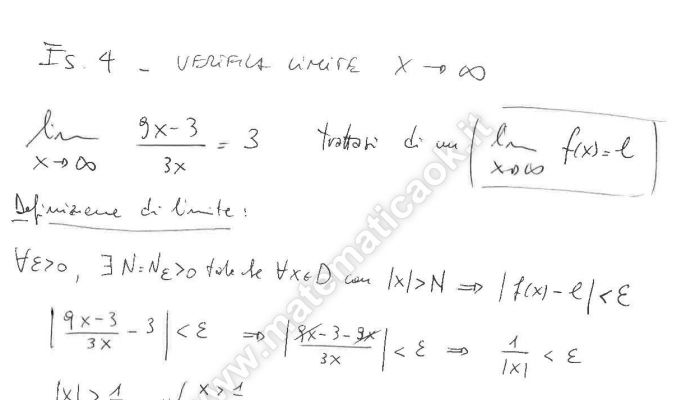 Es. 4 - VERIFICA LIMITE x → ∞
lim x→∞ 9x-3 / 3x = 3 trattasi di un lim x→∞ f(x) = l
Definizione di limite:
∀ε>0, ∃ N=Nε>0 tale che ∀x∈D con |x|>N ⇒ |f(x)-l|<ε
|9x-3 / 3x - 3| < ε ⇒ |9x-3-9x / 3x| < ε ⇒ 1/|x| < ε
|x| > 1 x > 1
www.matematicaok.it